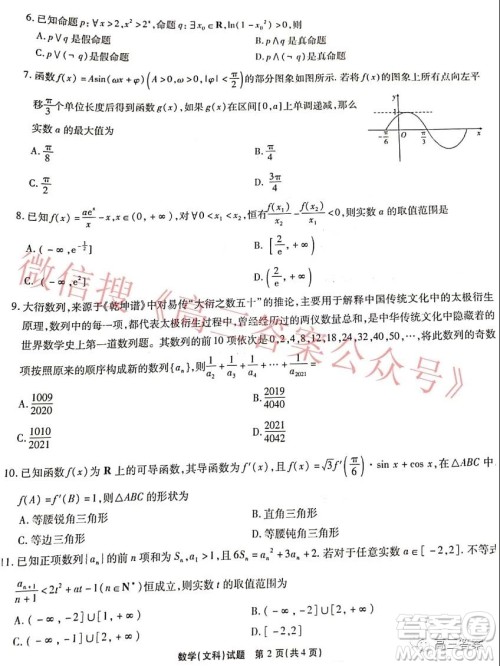 6. 已知命题 p:∀x>2,x²>2ˣ,命题 q:∃x₀∈R,ln(1-x₀²)≥0,则
A. p∨q 是假命题 B. p∧q 是真命题
C. p∨(¬q) 是假命题 D. p∧(¬q) 是真命题
7. 函数 f(x)=Asin(ωx+φ)(A>0,ω>0,|φ|<π/2) 的部分图象如图所示. 若将 f(x) 的图象上点向左平
移 π/3 个单位长度后得到函数 g(x) 的图象,若 g(x) 在区间 [0,a] 上单调递减,那么
实数 a 的最大值为
A. π/8 B. π/4
C. π/2 D. 3π/4
y
-π/6 O π/3 x
8. 已知 f(x)=aeˣ/x-x,x∈(0,+∞),对∀0<x₁<x₂,恒有 f(x₁)/x₂-f(x₂)/x₁<0,则实数 a 的取值范围是
B. [2/e,+∞)
D. (2/e,+∞)
9. 大衍数列,来源于《乾坤谱》中对易传“大衍之数五十”的推论,主要用于解释中国传统文化中的太极衍生
原理,数列中的每一项,都代表太极衍生过程中,曾经经历过的两仪数量总和,是中华传统文化中隐藏着的
世界数学史上第一道数列题。其数列的前 10 项依次是 0,2,4,8,12,18,24,32,40,50,
项按照原来的顺序构成新的数列{aₙ},则 1/a₁+1/a₂+1/a₃+…+1/a₂₀₂₁=
A. 1009/2020 B. 2019/4040
C. 1010/2021 D. 2021/4042
10. 已知函数 f(x) 为 R 上的可导函数,其导函数为 f′(x),且 f(x)=√3f′(π/6)·sinx+cosx,在△ABC 中
f(A)=f′(B)=1,则△ABC 的形状为
A. 等腰锐角三角形 B. 直角三角形
C. 等边三角形 D. 等腰钝角三角形
11. 已知正项数列{aₙ}的前 n 项和为 Sₙ,a₁>1,且 6Sₙ=aₙ²+3aₙ+2. 若对于任意实数 a∈[-2,2]. 不等式
aₙ₊₁/(n+1)<2t²+at-1(n∈N*)恒成立,则实数 t 的取值范围为
A. (-∞,-2]∪[2,+∞) B. (-∞,-2]∪[1,+∞)
C. (-∞,-1]∪[2,+∞) D. [-2,2]
数学(文科)试题 第 2 页(共 4 页)
微信搜《高三答案公众号》